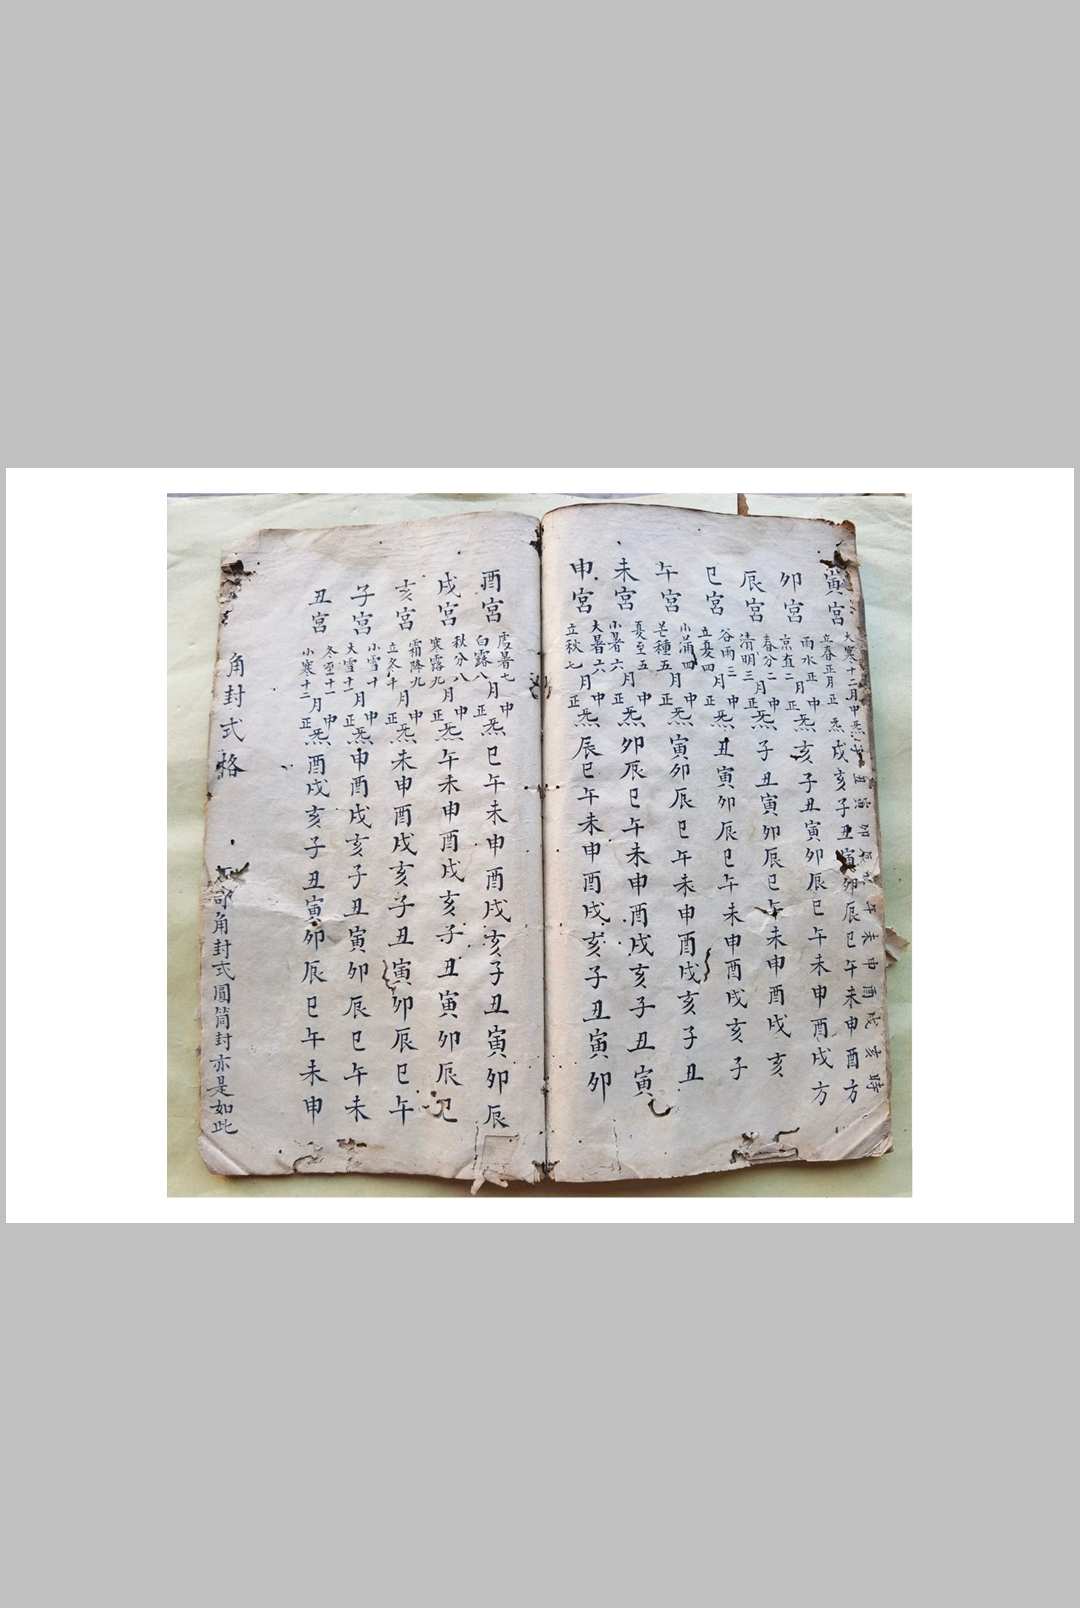 子丑寅卯辰巳午未申酉戌亥時
寅宮 大寒十二月中炁 立春正月正炁 戌亥子丑寅卯辰巳午未申酉方
卯宮 雨水正 京直二 月中正炁 亥子丑寅卯辰巳午未申酉戌方
辰宮 春分二 清明三 月中正炁 子丑寅卯辰巳午未申酉戌亥
巳宮 谷雨三 立夏四 月中正炁 丑寅卯辰巳午未申酉戌亥子
午宮 小蒲四 芒種五 月中正炁 寅卯辰巳午未申酉戌亥子丑
未宮 夏至五 小暑六 月中正炁 卯辰巳午未申酉戌亥子丑寅
申宮 大暑六 立秋七 月中正炁 辰巳午未申酉戌亥子丑寅卯
酉宮 處暑七 白露八 月中正炁 巳午未申酉戌亥子丑寅卯辰
戌宮 秋分八 寒露九 月中正炁 午未申酉戌亥子丑寅卯辰巳
亥宮 霜降九 立冬十 月中正炁 未申酉戌亥子丑寅卯辰巳午
子宮 小雪十 大雪十一 月中正炁 申酉戌亥子丑寅卯辰巳午未
丑宮 冬至十一 小寒十二 月中正炁 酉戌亥子丑寅卯辰巳午未申
角封式格
角封式圓筒封亦是如此